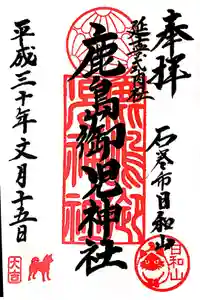 奉拝
石巻市日和山
延喜式内社
鹿島御児神社
平成三十年文月十五日
日和山
大吉